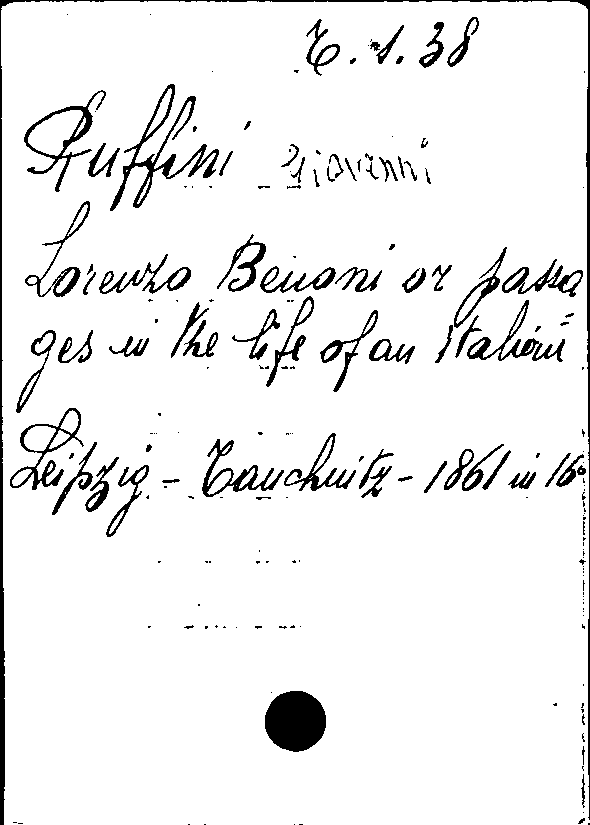 T. 1. 38
Ruffini Giovanni
Lorenzo Benoni or passa
ges in the life of an Italian
Leipzig - Tauchnitz - 1861 in 16°